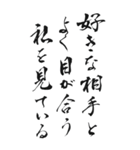 好きな相手と
よく目が合う
私を見ている